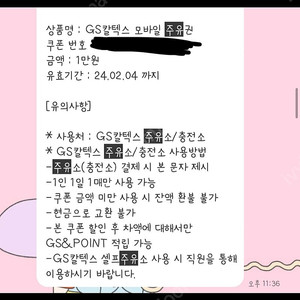 상품명 : GS칼텍스 모바일 주유권
쿠폰 번호
금액 : 1만원
유효기간 : 24.02.04 까지
[유의사항]
* 사용처 : GS칼텍스 주유소/충전소
* GS칼텍스 주유소/충전소 사용방법
-주유소(충전소) 결제 시 본 문자 제시
-1인 1일 1매만 사용 가능
-쿠폰 금액 미만 사용 시 잔액 환불 불가
-현금으로 교환 불가
-본 쿠폰 할인 후 차액에 대해서만
GS&POINT 적립 가능
-GS칼텍스 셀프주유소 사용 시 직원을 통해
이용하시기 바랍니다.
오후 11:36